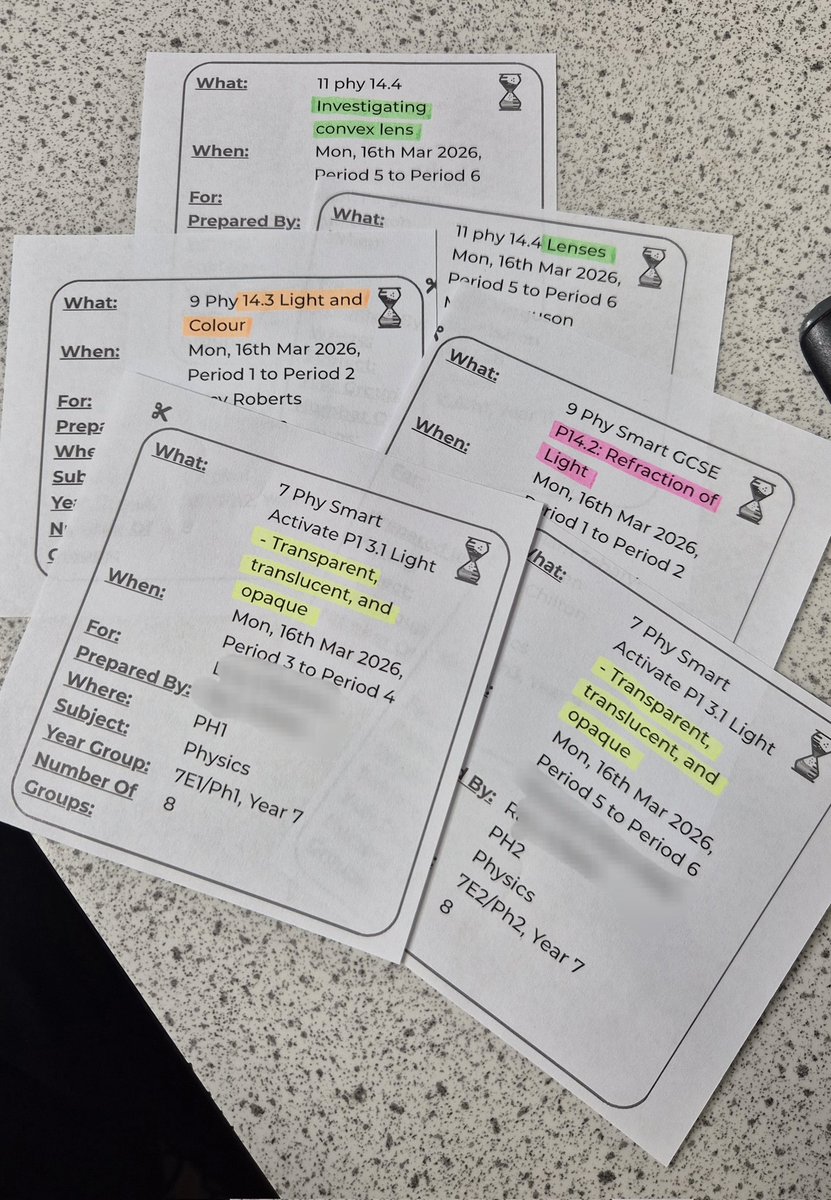 What: 11 phy 14.4
Investigating
convex lens
When: Mon, 16th Mar 2026,
Period 5 to Period 6
For:
Prepared By:
What: 11 phy 14.4 Lenses
Mon, 16th Mar 2026,
Period 5 to Period 6
What: 9 Phy 14.3 Light and
Colour
When: Mon, 16th Mar 2026,
Period 1 to Period 2
For: Roberts
What: 9 Phy Smart GCSE
P14.2: Refraction of
Light
When: Mon, 16th Mar 2026,
Period 1 to Period 2
What: 7 Phy Smart
Activate P1 3.1 Light
- Transparent,
translucent, and
opaque
When: Mon, 16th Mar 2026,
Period 3 to Period 4
For:
Prepared By:
Where: PH1
Subject: Physics
Year Group: 7E1/Ph1, Year 7
Number Of
Groups: 8
What: 7 Phy Smart
Activate P1 3.1 Light
- Transparent,
translucent, and
opaque
Mon, 16th Mar 2026,
Period 5 to Period 6
By:
PH2
Physics
7E2/Ph2, Year 7
8